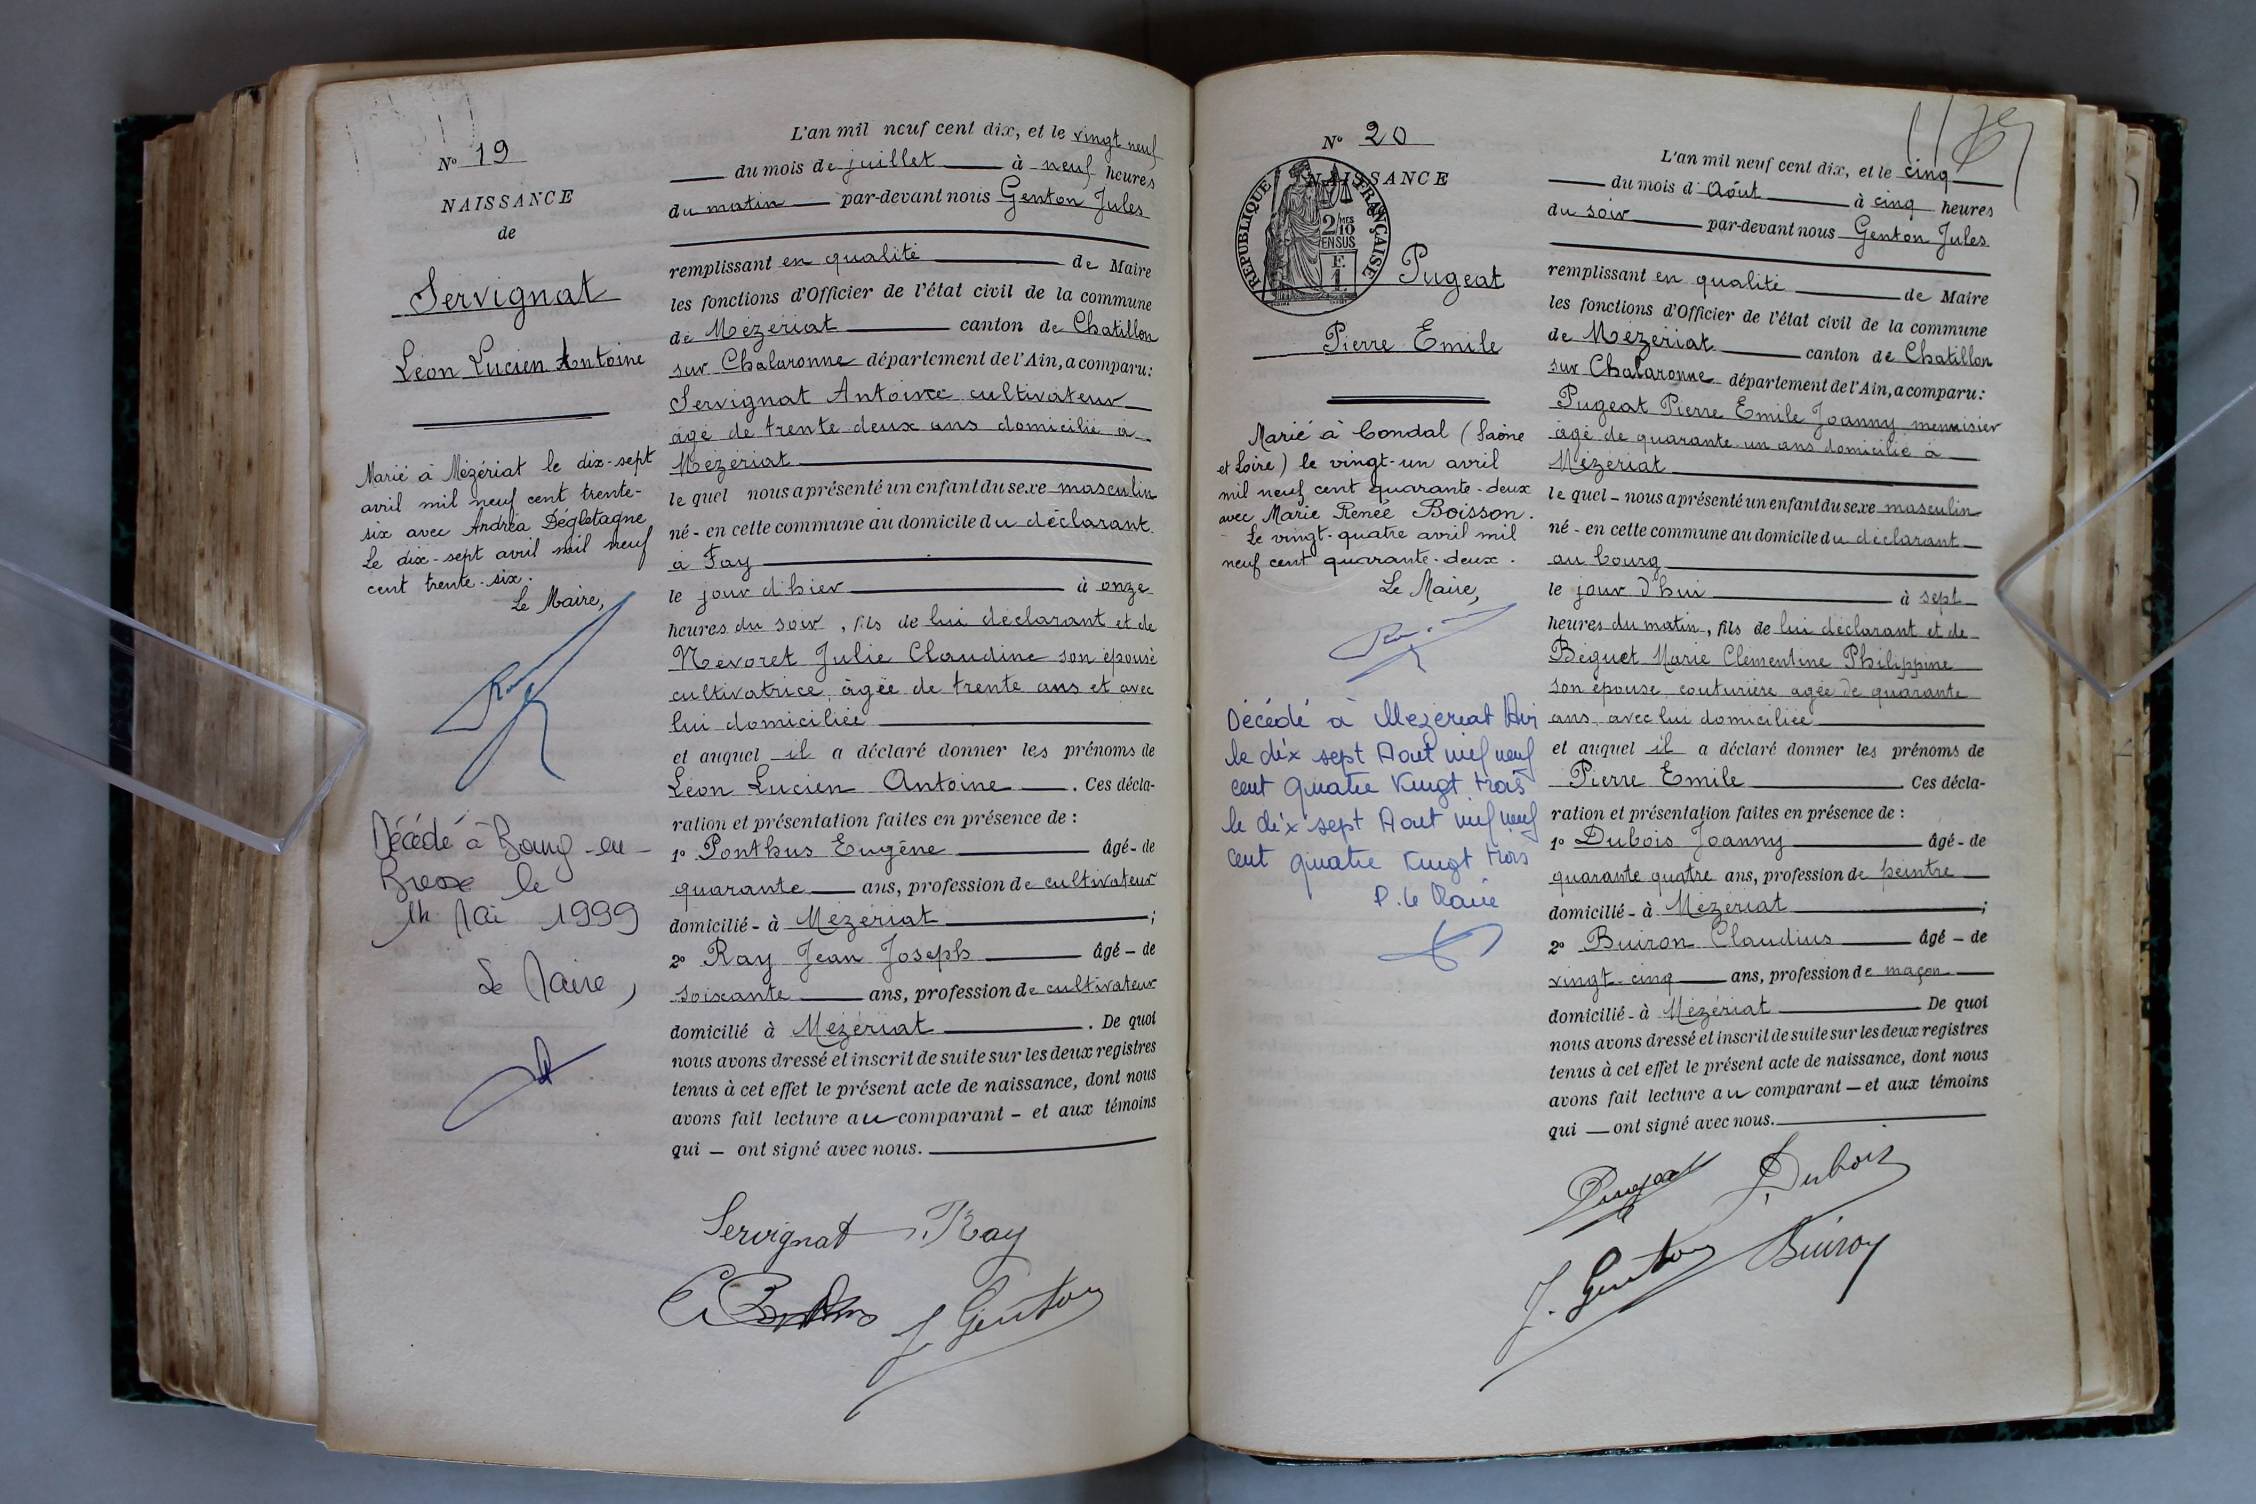 N° 19
NAISSANCE
de
Servignat
Léon Lucien Antoine
Marié à Mézériat le dix-sept
avril mil neuf cent trente-
six avec Andréa Dégletagne
Le dix-sept avril mil neuf
cent trente-six.
Le Maire,
Décédé à Bourg-en-
Bresse le
14 Mai 1999
Le Maire,
L'an mil neuf cent dix, et le vingt neuf
du mois de juillet à neuf heures
du matin par-devant nous Genton Jules
remplissant en qualité de Maire
les fonctions d'Officier de l'état civil de la commune
de Mézériat canton de Chatillon
sur Chalaronne département de l'Ain, a comparu:
Servignat Antoine cultivateur
âgé de trente deux ans domicilié à
Mézériat
le quel nous a présenté un enfant du sexe masculin
né - en cette commune au domicile du déclarant
à Fay
le jour d'hier à onze
heures du soir, fils de lui déclarant et de
Névoret Julie Claudine son épouse
cultivatrice âgée de trente ans et avec
lui domiciliée
et auquel il a déclaré donner les prénoms de
Léon Lucien Antoine . Ces décla-
ration et présentation faites en présence de :
1° Ponthus Eugène âgé - de
quarante ans, profession de cultivateur
domicilié - à Mézériat ;
2° Ray Jean Joseph âgé - de
soixante ans, profession de cultivateur
domicilié à Mézériat . De quoi
nous avons dressé et inscrit de suite sur les deux registres
tenus à cet effet le présent acte de naissance, dont nous
avons fait lecture au comparant - et aux témoins
qui - ont signé avec nous.
Servignat Ray
J. Genton
N° 20
NAISSANCE
REPUBLIQUE FRANÇAISE
2/10MES
EN SUS
Pugeat
Pierre Emile
Marié à Condal (Saône
et Loire) le vingt-un avril
mil neuf cent quarante-deux
avec Marie Renée Boisson.
Le vingt-quatre avril mil
neuf cent quarante-deux.
Le Maire,
Décédé à Mézériat Ain
le dix sept Aout mil neuf
cent quatre vingt trois
le dix sept Aout mil neuf
cent quatre vingt trois
P. Le Maire
L'an mil neuf cent dix, et le cinq
du mois d'Août à cinq heures
du soir par-devant nous Genton Jules
remplissant en qualité de Maire
les fonctions d'Officier de l'état civil de la commune
de Mézériat canton de Chatillon
sur Chalaronne département de l'Ain, a comparu:
Pugeat Pierre Emile Joanny menuisier
âgé de quarante-un ans domicilié à
Mézériat
le quel - nous a présenté un enfant du sexe masculin
né - en cette commune au domicile du déclarant
au bourg
le jour d'hui à sept
heures du matin, fils de lui déclarant et de
Béguet Marie Clémentine Philippine
son épouse couturière agée de quarante
ans, avec lui domiciliée
et auquel il a déclaré donner les prénoms de
Pierre Emile . Ces décla-
ration et présentation faites en présence de :
1° Dubois Joanny âgé - de
quarante quatre ans, profession de peintre
domicilié - à Mézériat ;
2° Buiron Claudius âgé - de
vingt-cinq ans, profession de maçon
domicilié - à Mézériat De quoi
nous avons dressé et inscrit de suite sur les deux registres
tenus à cet effet le présent acte de naissance, dont nous
avons fait lecture au comparant - et aux témoins
qui - ont signé avec nous.
Pugeat J. Dubois
J. Genton Buiron